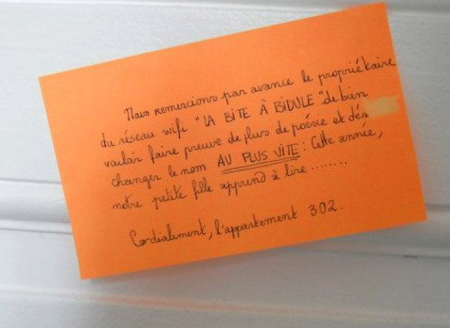 Nous remercions par avance le propriétaire
du réseau wifi "LA BITE À BIDULE" de bien
vouloir faire preuve de plus de poésie et d'en
changer le nom AU PLUS VITE : Cette année,
notre petite fille apprend à lire ........
Cordialement, l'appartement 302.